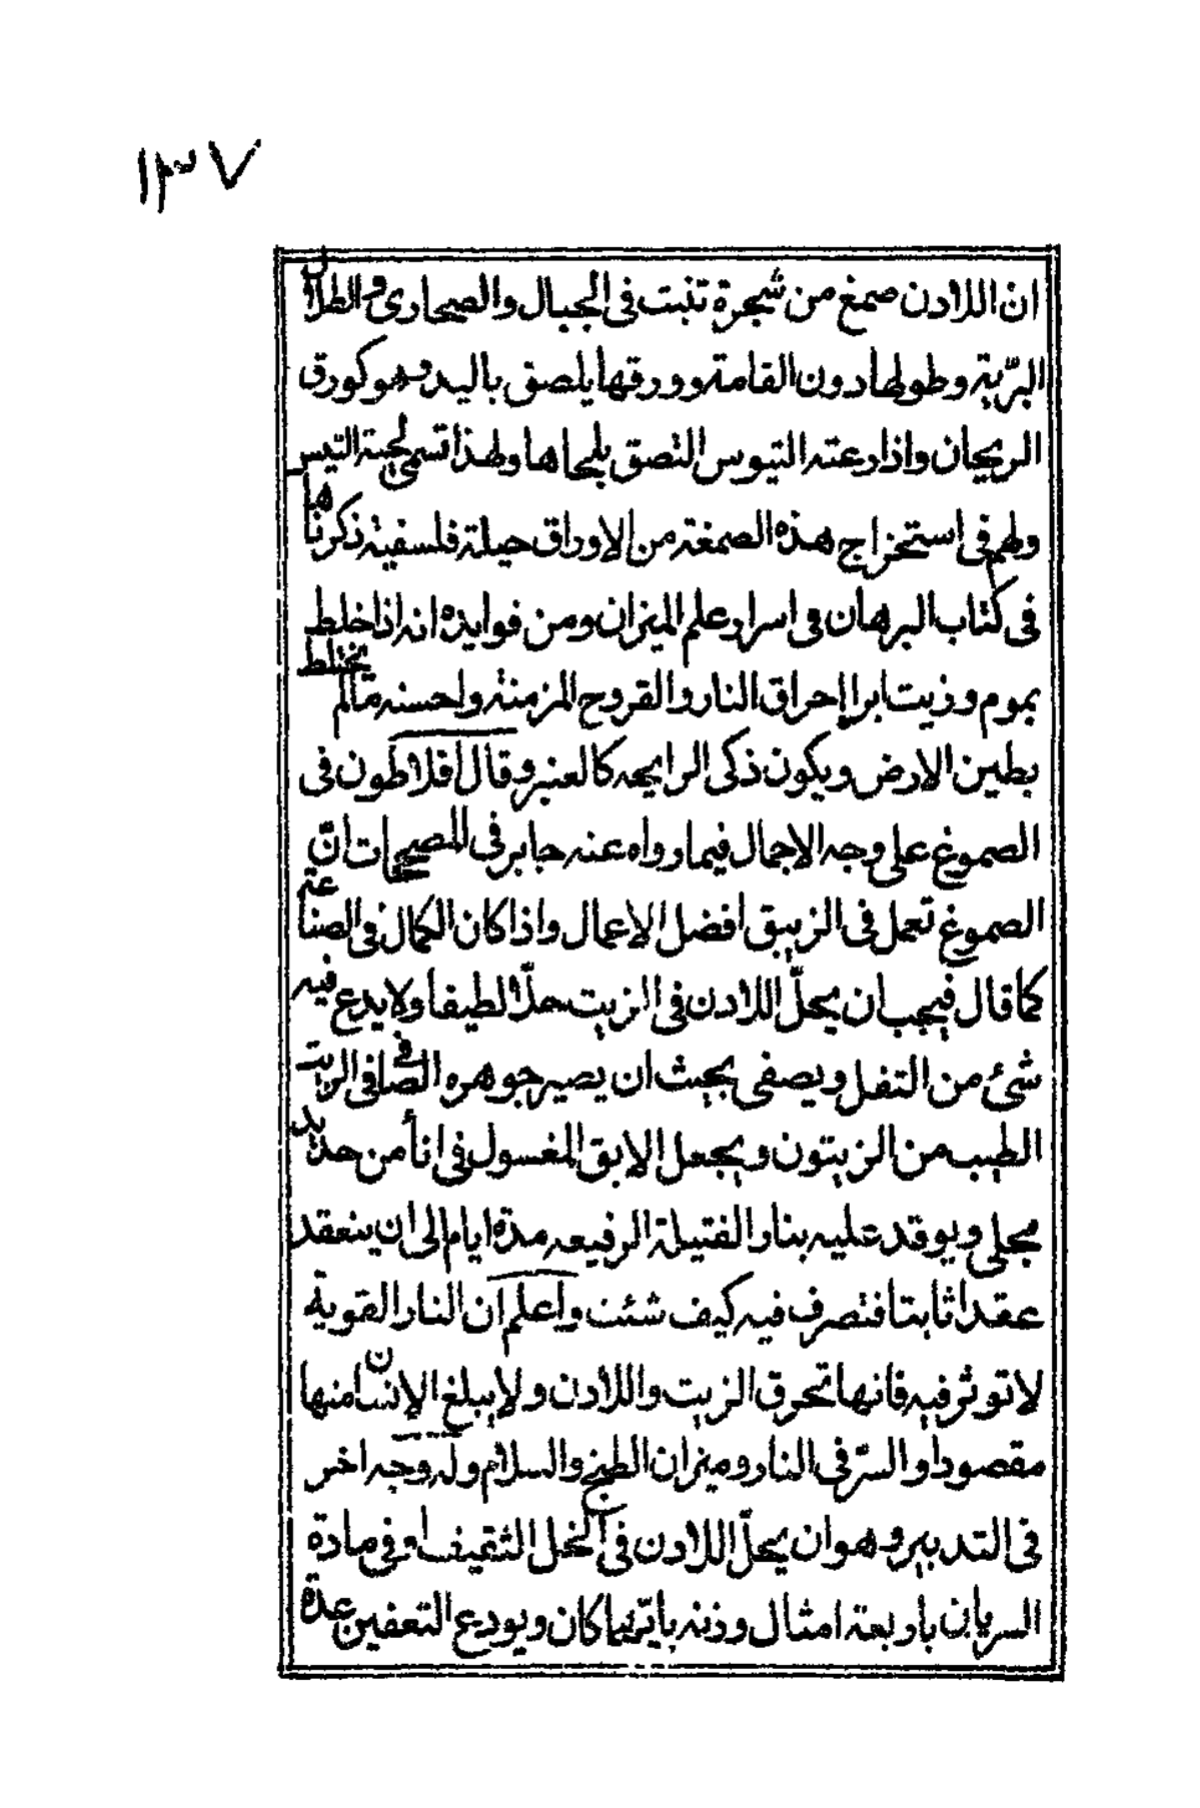 ١٣٧
ان اللادن صمغ من شجرة تنبت فى الجبال والصحارى والطلال
البرّية وطولها دون القامة وورقها يلصق باليد وهو كورق
الريحان واذا رعته التيوس التصق بلحاها ولهذا تسمى لحية التيس
ولهم فى استخراج هذه الصمغة من الاوراق حيلة فلسفية ذكرناها
فى كتاب البرهان فى اسرار علم الميزان ومن فوايده انه اذا خلط
بموم وزيت ابرا إحراق النار والقروح المزمنة واحسنه مالم يختلط
بطين الارض ويكون ذكى الرايحه كالعنبر وقال افلاطون فى
الصموغ على وجه الاجمال فيما رواه عنه جابر فى المصححات انّ
الصموغ تعمل فى الزيبق افضل الاعمال واذا كان الكمال فى الصناعة
كما قال فيجب ان يحلّ اللادن فى الزيت حلّا لطيفا ولا يدع فيه
شئ من التفل ويصفى بحيث ان يصير جوهره الصافى فى الزيت
الطيب من الزيتون ويجعل الابق المغسول فى انأ من حديد
مجلى ويوقد عليه بنار الفتيلة الرفيعه مدة ايام الى ان ينعقد
عقدا ثابتا فتصرف فيه كيف شئت واعلم ان النار القوية
لا توثر فيه فانها تحرق الزيت واللادن ولا يبلغ الانسان منها
مقصودا والسرّ فى النار وميزان الطبخ والسلام وله وجه اخر
فى التدبير وهو ان يحلّ اللادن فى الخل الثقيف او فى مادة
السريان باربعة امثال وزنه بايّهما كان ويودع التعفين عدة